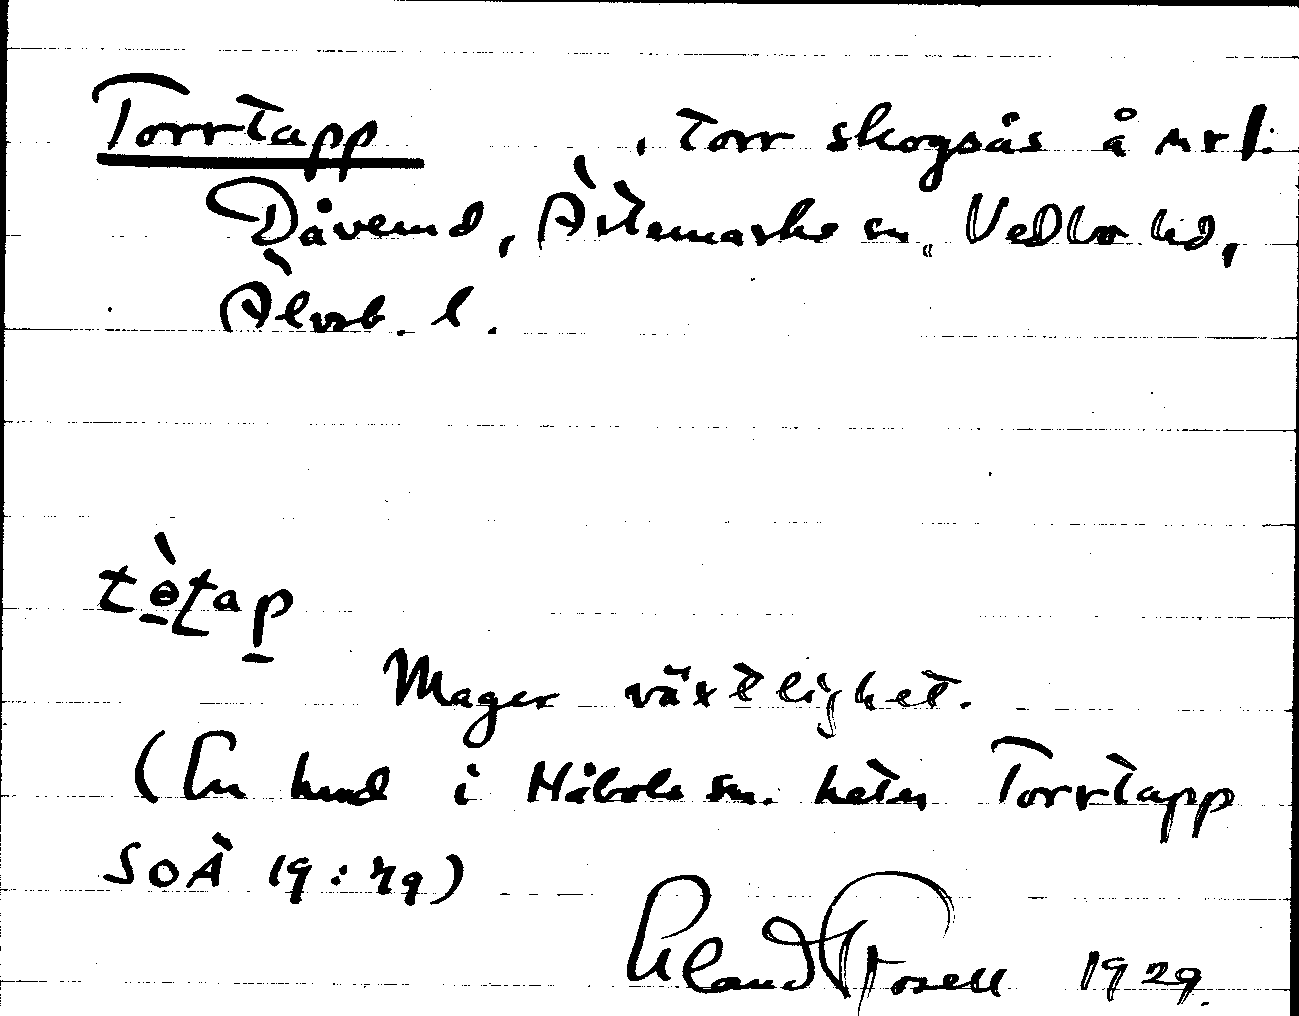 Torrtapp , Torr skogsås å
Dåverud, Ärtemarks sn, Vedbo hd,
Älvsb. l.
tɵ̀tap
Mager växtlighet.
(En hmd i Håbols sn. heter Torrtapp
SOÄ 19:79)
Erland Rosell 1929.